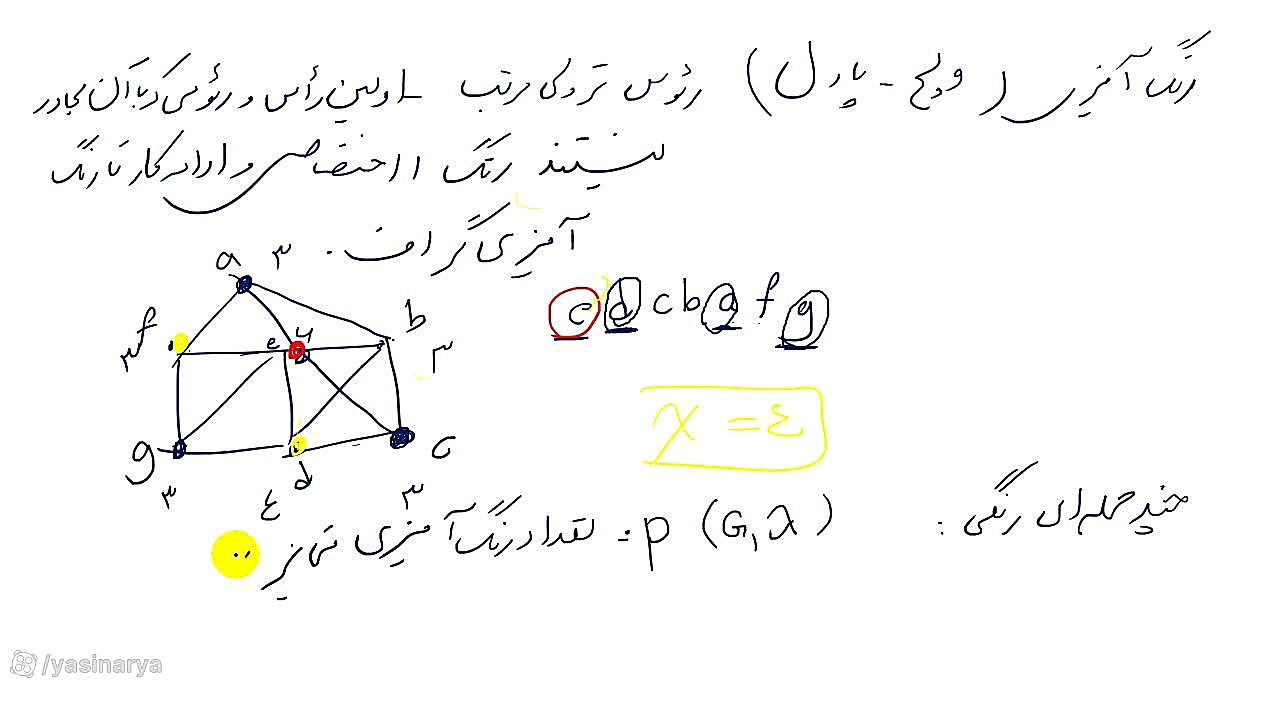 رنگ آمیزی (ولچ - پاول) رئوس نزولی مرتب - اولین رأس و رئوسی که با آن مجاور
نیستند رنگ 1 اختصاص و ادامه کار تا رنگ
آمیزی گراف .
a ۳
e d c b a f g
f ۳
e ۶
b ۳
χ = ٤
g ۳
d ٤
c ۳
چند جمله ای رنگی : P (G, λ) = تعداد رنگ آمیزی متمایز
/yasinarya